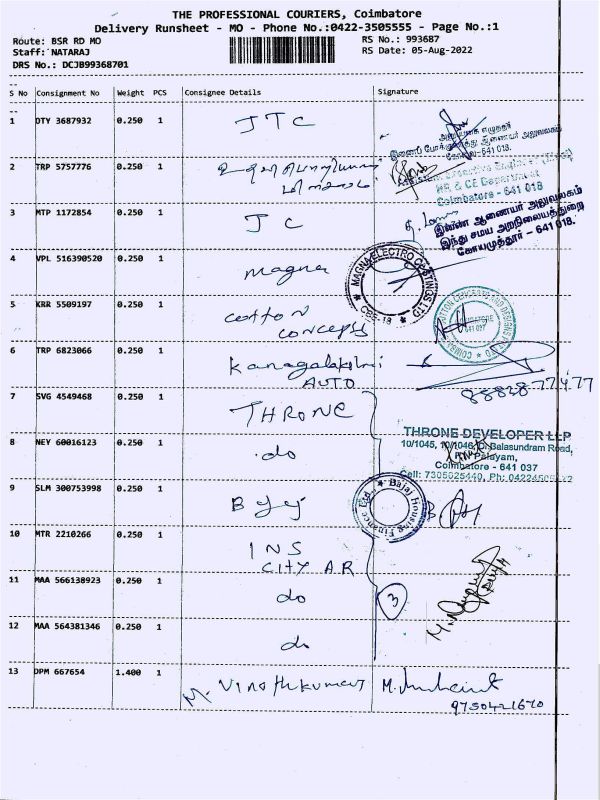 THE PROFESSIONAL COURIERS, Coimbatore
Delivery Runsheet - MO - Phone No.:0422-3505555 - Page No.:1
Route: BSR RD MO
Staff: NATARAJ
DRS No.: DCJB99368701
RS No.: 993687
RS Date: 05-Aug-2022
S No Consignment No Weight PCS Consignee Details Signature
1 DTY 3687932 0.250 1 JTC
இணைப் போக்குவரத்து ஆணையர் அலுவலகம்
கோவை-641 018.
2 TRP 5757776 0.250 1
மின்சாரம்
Assistant Executive Engineer
HR & CE Department
Coimbatore - 641 018
3 MTP 1172854 0.250 1 JC
இணை ஆணையர் அலுவலகம்
இந்து சமய அறநிலையத்துறை
கோயமுத்தூர் – 641 018.
4 VPL 516390520 0.250 1 magna
MAGNA ELECTRO CASTINGS LTD
CBE-18
5 KRR 5509197 0.250 1 cotton
concepts
COIMBATORE
641 037
6 TRP 6823066 0.250 1 Kanagalakshmi
AUTO
7 SVG 4549468 0.250 1 THRONE
THRONE DEVELOPER LLP
10/1045, 10/1046, Balasundram Road,
Palayam,
Coimbatore - 641 037
Cell: 7305625440, Ph:
8 NEY 60016123 0.250 1 do
9 SLM 300753998 0.250 1 Bajaj
Bajaj Housing Finance Ltd.
10 MTR 2210266 0.250 1 INS
CITY AR
11 MAA 566138923 0.250 1 do
3
12 MAA 564381346 0.250 1 do
13 DPM 667654 1.400 1 M. Vinothkumar
9750421670